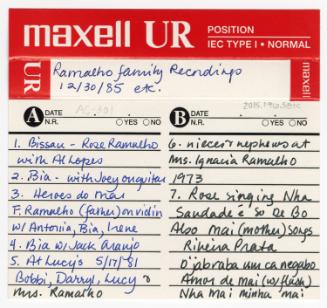 maxell UR
POSITION
IEC TYPE I • NORMAL
UR
Ramalho family Recordings
12/30/85 etc.
maxell
A DATE
N.R. ○YES ○NO
B DATE
N.R. ○YES ○NO
1. Bissau - Rose Ramalho
with Al Lopes
2. Bia - with Joey on guitar
3. Heroes do Mar
F. Ramalho (father) on violin
w/ Antonia, Bia, Irene
4. Bia w/ Jack Araujo
5. At Lucy's 5/17/81
Bobbi, Darryl, Lucy &
Mrs. Ramalho
6. nieces & nephews at
Ms. Ignacia Ramalho
1973
7. Rose singing Nha
Saudade e so de Bo
Also Mai (mother) songs
Ribeira Prata
O'jbraba um ca negabo
Amor de mai (w/ flash)
Nha Mai minha mai